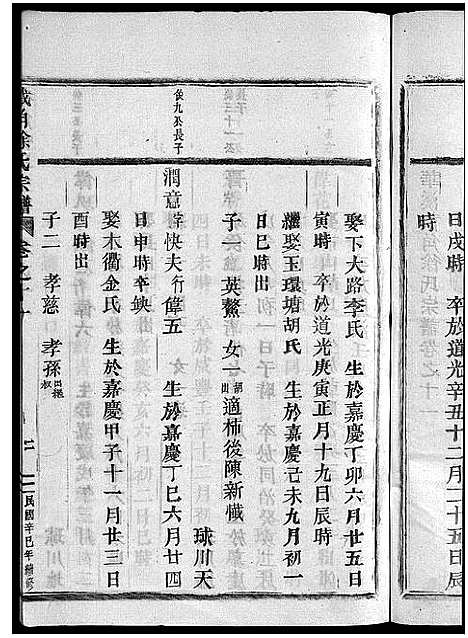 日戌時　卒於道光辛丑十二月二十五日辰
時
娶下大路李氏　生於嘉慶丁卯六月廿五日
寅時　卒於道光庚寅正月十九日辰時
繼娶玉環塘胡氏　生於嘉慶己未九月初一
日巳時出
子一　英鰲　女一　胡出　適柿後陳新懴
俊九公長子
潤意　字快夫　行偉五　生於嘉慶丁巳六月廿四
日申時卒缺　球川天
娶木衢金氏　生於嘉慶甲子十一月廿三日
酉時出
子二　孝慈　孝孫　出繼
徐氏宗譜　卷之十一
民國辛巳年續修